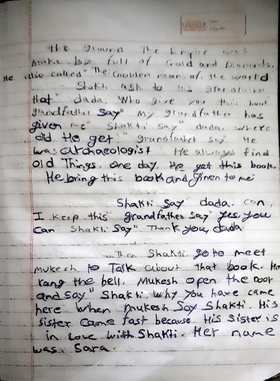 the ground The Empire was
make by full of Gold and Diamonds.
He also called "The Goulden man of the world
Shakti ask to his grandfather
that dada. Who give you this book
grandfather say" My grandfather has
given me" Shakti say dada. where
did He get" grandfather say He
was archaeologist He always find
old Things. one day. He get this book.
He bring this book and given to me
Shakti say dada. can
I keep this" grandfather say" yes, you
can Shakti say". Thank you dada
Then Shakti go to meet
mukesh to Talk about That book. He
rang the bell. Mukesh open the door
and say" Shakti. why you have came
here when mukesh say Shakti. His
sister came fast because His sister is
in Love with Shakti. Her name
was. Sara.